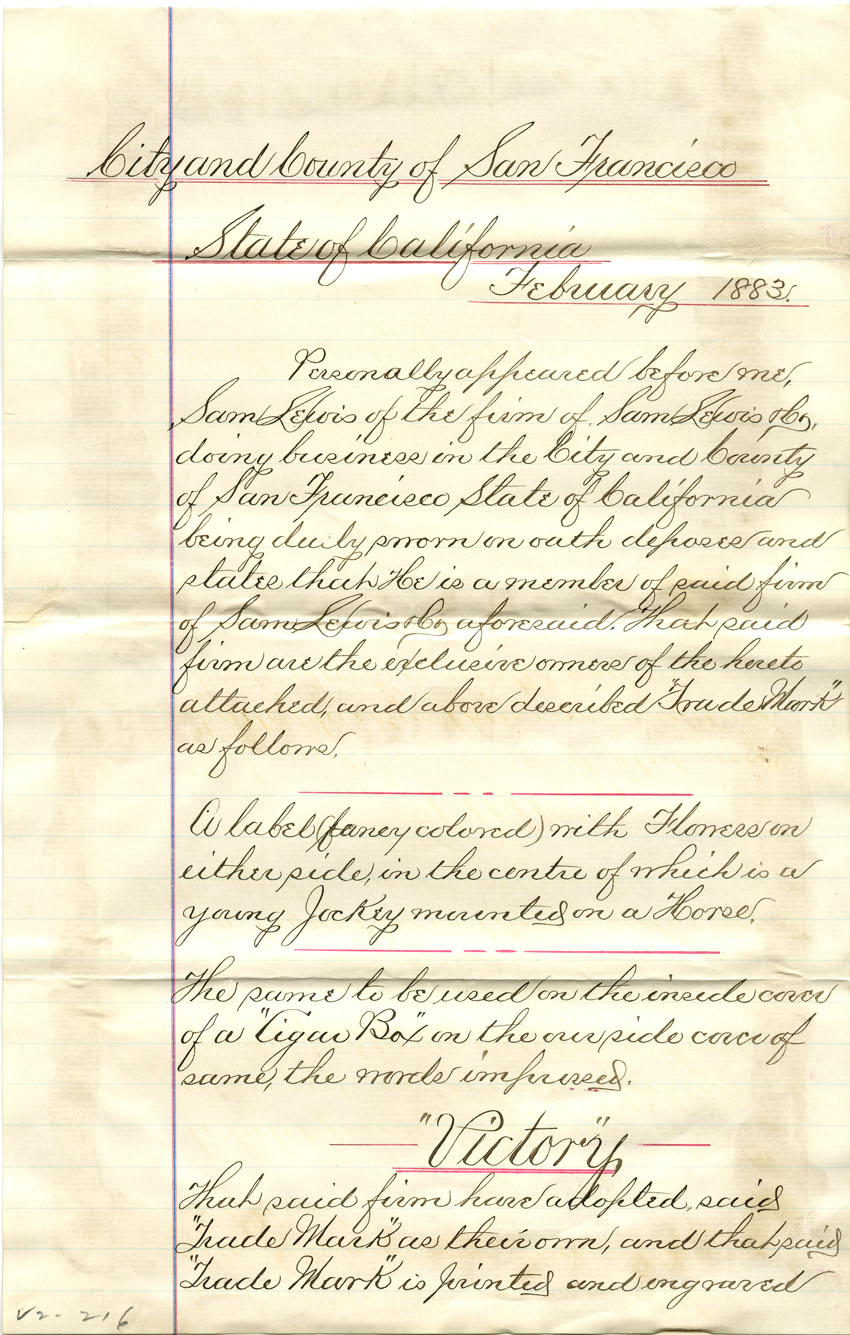 City and County of San Francisco
State of California
February 1883.
Personally appeared before me,
Sam Lewis of the firm of Sam Lewis & Co,
doing business in the City and County
of San Francisco State of California
being duly sworn on oath deposes and
states that He is a member of said firm
of Sam Lewis & Co aforesaid. That said
firm are the exclusive owners of the hereto
attached, and above described "Trade Mark"
as follows.
A label (fancy colored) with Flowers on
either side, in the centre of which is a
young Jockey mounted on a Horse.
The same to be used on the inside cover
of a "Cigar Box" on the outside cover of
same, the words impressed.
"Victory"
That said firm have adopted, said
"Trade Mark" as their own, and that said
"Trade Mark" is printed and engraved
V2-216